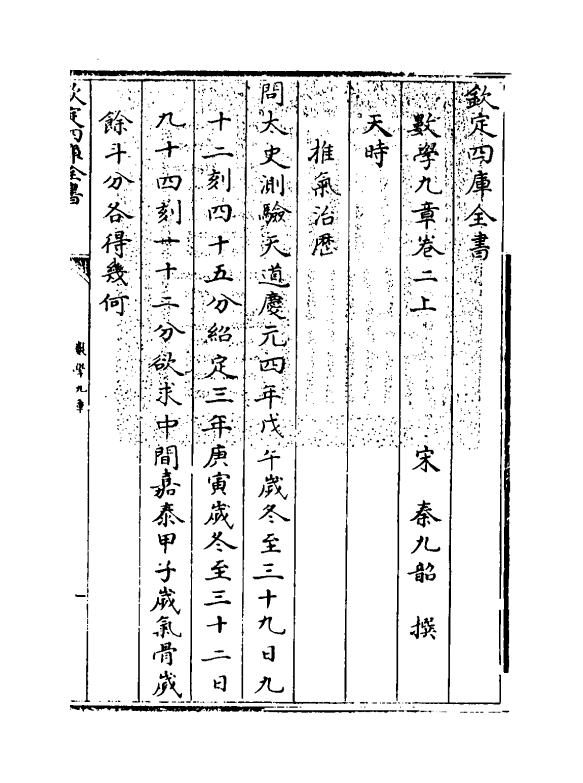 欽定四庫全書
數學九章卷二上
宋 秦九韶 撰
天時
推氣治歷
問太史測驗天道慶元四年戊午歲冬至三十九日九
十二刻四十五分紹定三年庚寅歲冬至三十二日
九十四刻一十二分欲求中間嘉泰甲子歲氣骨歲
餘斗分各得幾何
欽定四庫全書
數學九章
一